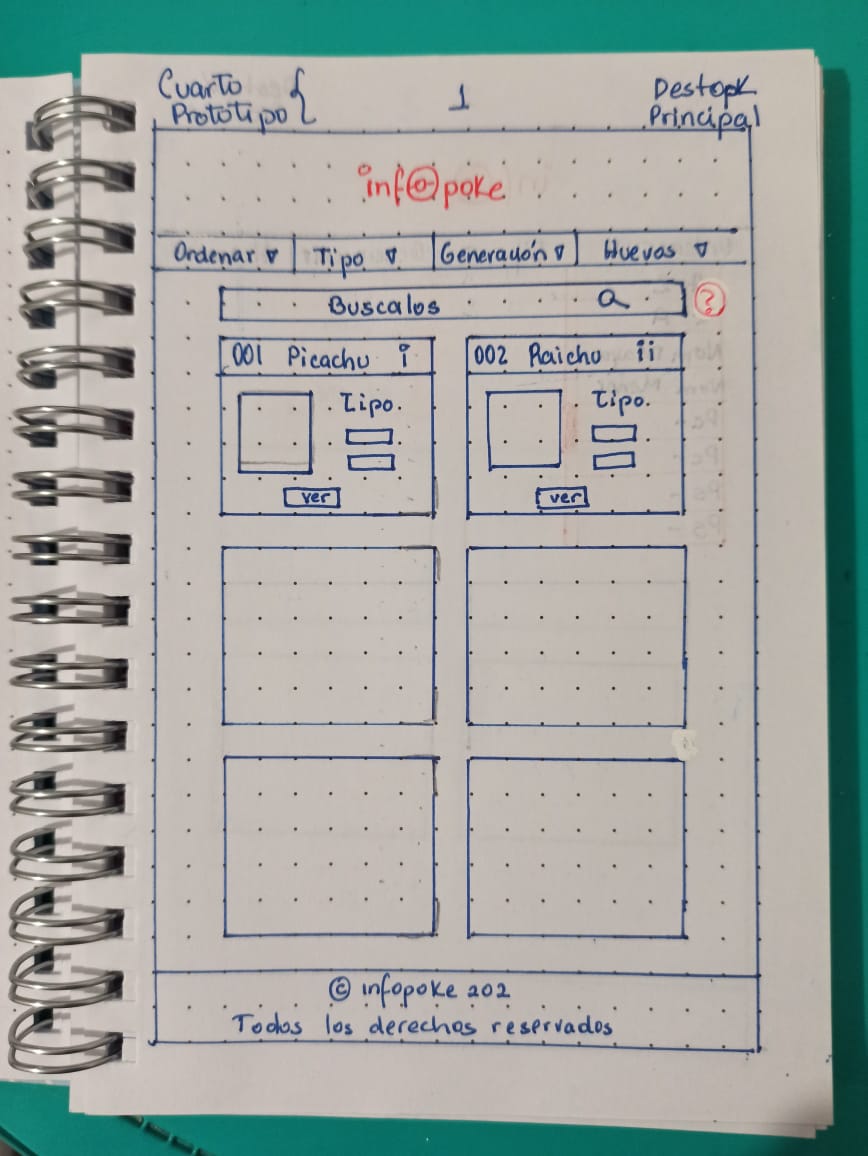 Cuarto
Prototipo {
1
Destopk
Principal
info poke
Ordenar ▽ Tipo ▽ Generación ▽ Huevos ▽
Buscalos
?
001 Picachu i
002 Raichu ii
Tipo.
Tipo.
ver
ver
© infopoke 202
Todos los derechos reservados